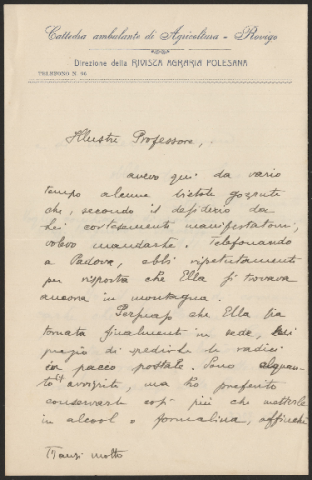 Cattedra ambulante di Agricoltura - Rovigo
Direzione della RIVISTA AGRARIA POLESANA
TELEFONO N. 86
Illustre Professore,
avevo qui da vario
tempo alcune bietole gozzute
che, secondo il desiderio da
Lei cortesemente manifestatomi,
volevo mandarle. Telefonando
a Padova, ebbi ripetutamente
per risposta che Ella si trovava
ancora in montagna.
Ella sia
tornata finalmente in sede, mi
pregio di spedirle le radici
in pacco postale. Sono alquan-
to avvizzite, ma ho preferito
conservarle così più che metterle
in alcool o formalina, affinchè
molto